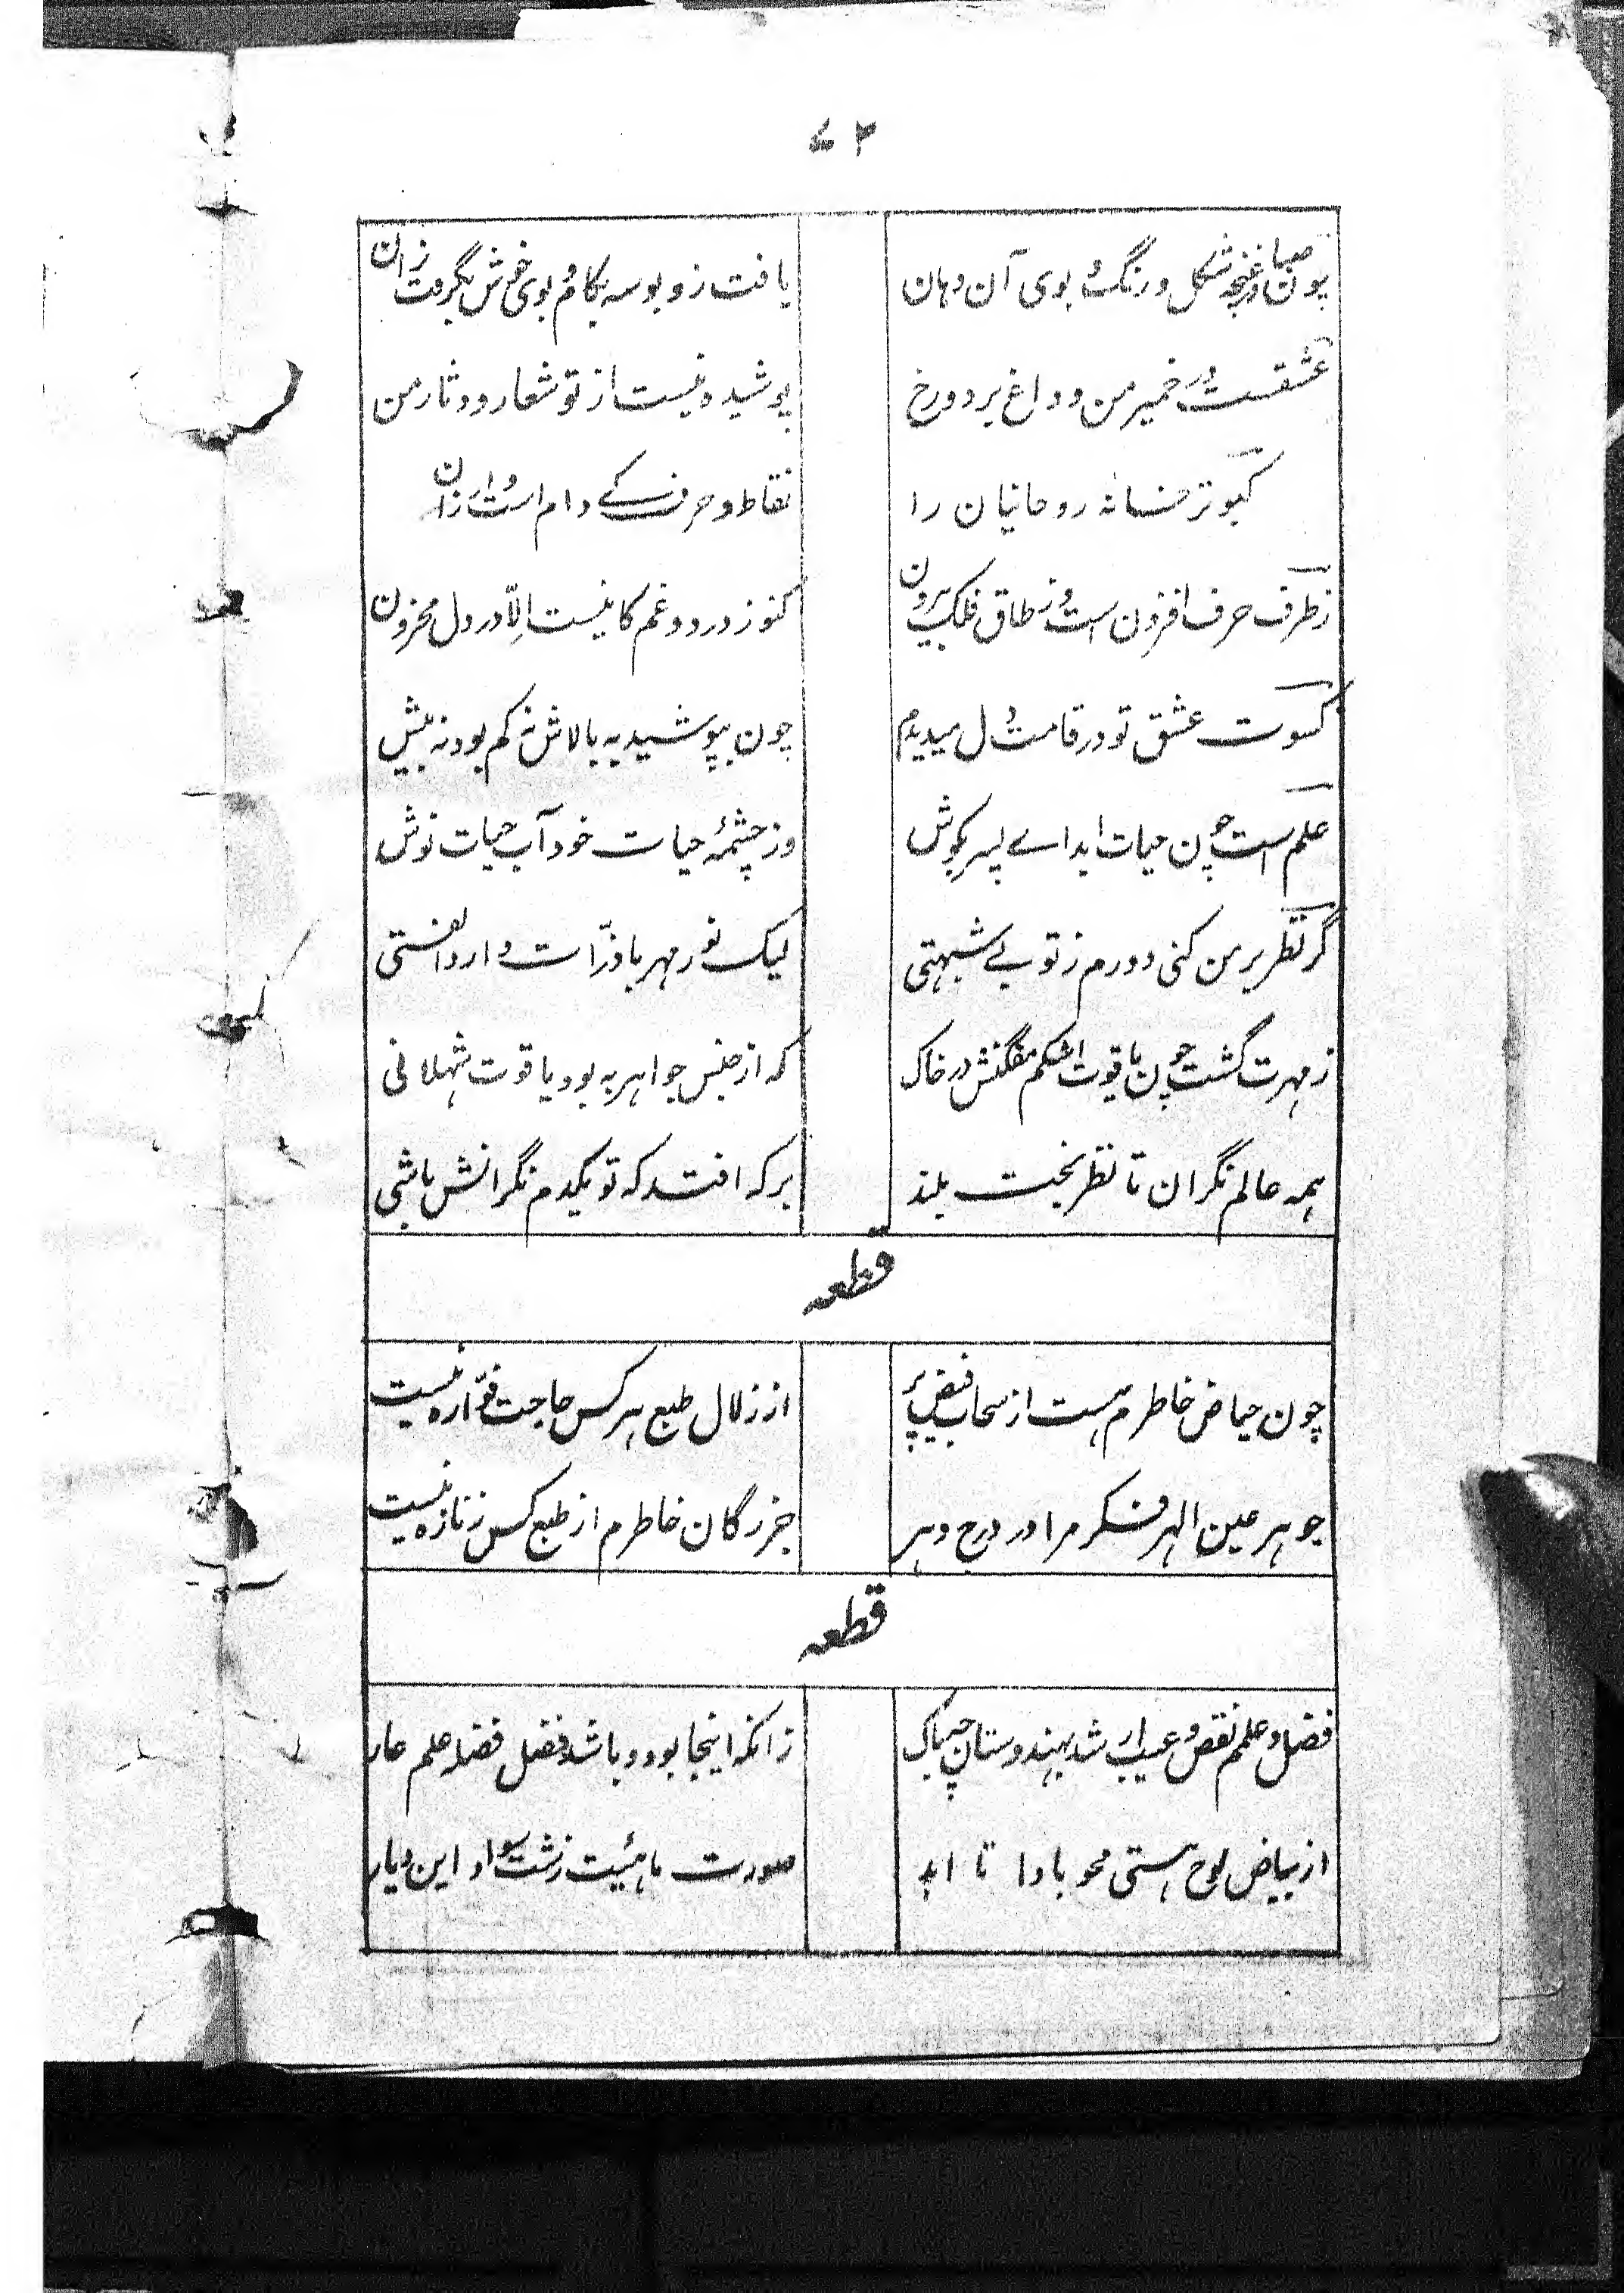 ۷۲
چون صبا در غنچه شکل و رنگ و بوی آن دهان
یافت زو بوسه بکام و بوی خوش بگرفت زان
عشقست در خمیر من و داغ بر دو رخ
پوشیده نیست از تو شعار و دثار من
کبوتر خانهٔ روحانیان را
نقاط و حرف کے دام است و ارزان
ز طرف حرف افزون است و ز طاق فلک بیرون
کنوز درد و غم کانیست الّا در دل محزون
کسوت عشق تو در قامت دل میدیدم
چون بپوشید به بالاش نه کم بود نه بیش
علم است چون حیات ابد اے پسر بکوش
وز چشمهٔ حیات خود آب حیات نوش
گر نظر بر من کنی دورم ز تو بے شبهتی
لیک نور مهر با ذرّات دارد الفتی
ز مهرت گشت چون یاقوت اشکم مفگنش در خاک
که از جنس جواهر به بود یاقوت شهلانی
همه عالم نگران تا نظر بخت بلند
بر که افتد که تو یکدم نگرانش باشی
قطعه
چون حیاض خاطرم هست از سحاب فیض پر
از زلال طبع هر کس حاجت فوّاره نیست
جوهر عین الهر فکر مرا در درج دهر
جز رگان خاطرم از طبع کس زنازه نیست
قطعه
فضل و علم نقص و عیب ار شد بهندوستان چه باک
زانکه اینجا بود و باشد فضل فضله علم عار
از بیاض لوح هستی محو بادا تا ابد
صورت ماهیئت زشت سواد این دیار